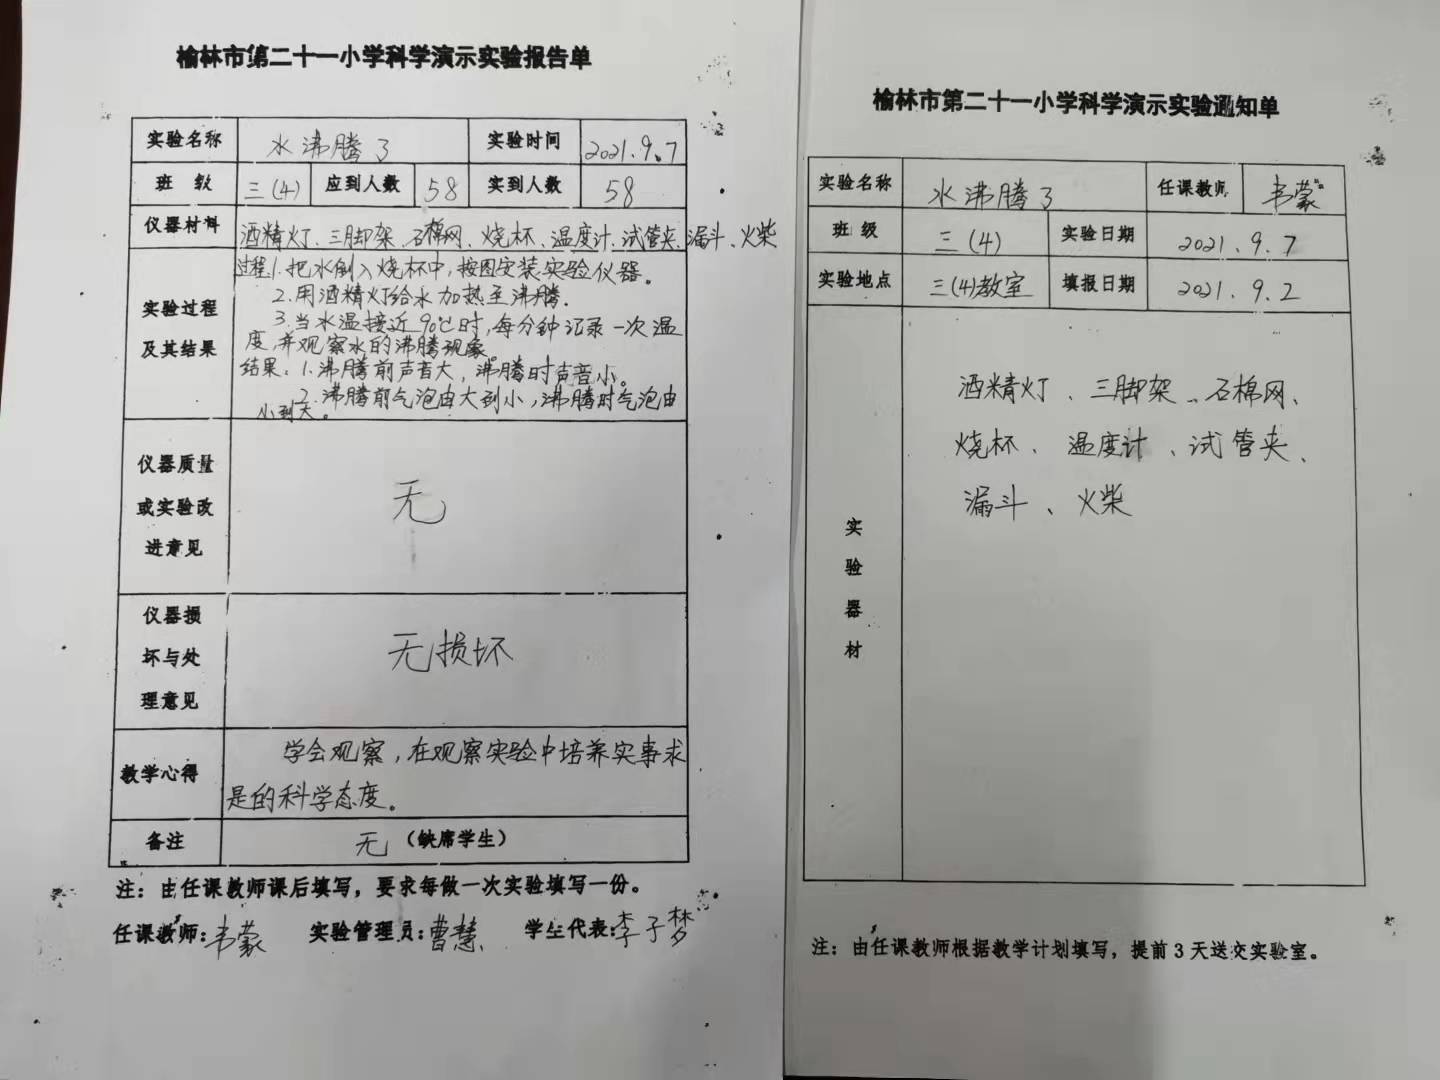 榆林市第二十一小学科学演示实验报告单
实验名称 水沸腾了 实验时间 2021.9.7
班 级 三(4) 应到人数 58 实到人数 58
仪器材料 酒精灯、三脚架、石棉网、烧杯、温度计、试管夹、漏斗、火柴
实验过程
及其结果
过程:1.把水倒入烧杯中,按图安装实验仪器。
2.用酒精灯给水加热至沸腾.
3.当水温接近90℃时,每分钟记录一次温
度,并观察水的沸腾现象。
结果:1.沸腾前声音大,沸腾时声音小。
2.沸腾前气泡由大到小,沸腾时气泡由
小到大。
仪器质量
或实验改
进意见
无
仪器损
坏与处
理意见
无损坏
教学心得
学会观察,在观察实验中培养实事求
是的科学态度。
备注 无 (缺席学生)
注:由任课教师课后填写,要求每做一次实验填写一份。
任课教师:韦蒙 实验管理员:曹慧 学生代表:李子梦
榆林市第二十一小学科学演示实验通知单
实验名称 水沸腾了 任课教师 韦蒙
班 级 三(4) 实验日期 2021.9.7
实验地点 三(4)教室 填报日期 2021.9.2
实
验
器
材
酒精灯、三脚架、石棉网、
烧杯、温度计、试管夹、
漏斗、火柴
注:由任课教师根据教学计划填写,提前3天送交实验室。